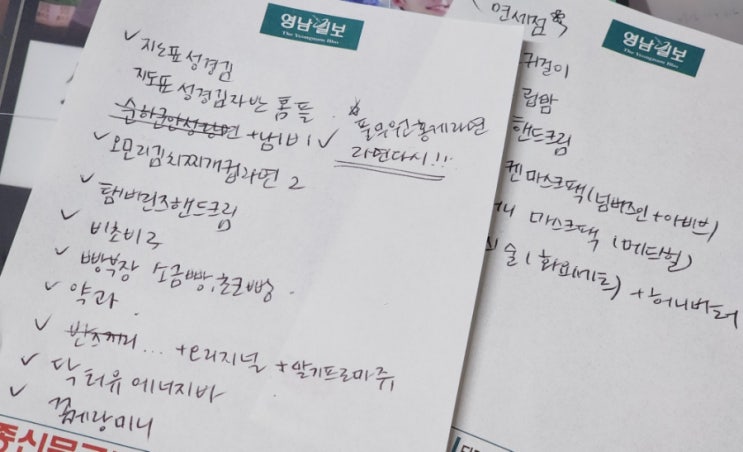 영남일보
The Yeongnam Ilbo
✓ 지도표 성경김
지도표 성경김자반 홈플
순하군안성탕면 +냄비 ✓
☆ 풀무원황제라면
라면다시!!!
✓ 오모리김치찌개컵라면 2
✓ 탬버린즈핸드크림
✓ 비쵸비 구
✓ 빵부장 소금빵,초코빵.
✓ 약과
✓ 반츠끼리... +오리지널 +딸기프로마쥬
✓ 닥터유에너지바
✓ 꿈메랑미니
종신문
면세점
영남일보
The Yeongnam Ilbo
귀걸이
립밤
핸드크림
켄마스크팩(넘버즈인+아비브)
마스크팩 (메디힐)
술(화요세트) +허니버터